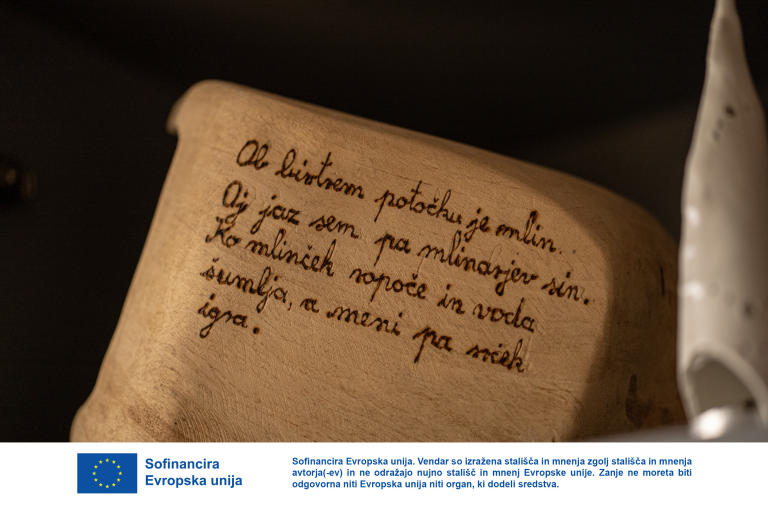 Ob bistrem potočku je mlin.
Oj jaz sem pa mlinarjev sin.
Ko mlinček ropoče in voda
šumlja, a meni pa srček
igra.
Sofinancira
Evropska unija
Sofinancira Evropska unija. Vendar so izražena stališča in mnenja zgolj stališča in mnenja
avtorja(-ev) in ne odražajo nujno stališč in mnenj Evropske unije. Zanje ne moreta biti
odgovorna niti Evropska unija niti organ, ki dodeli sredstva.